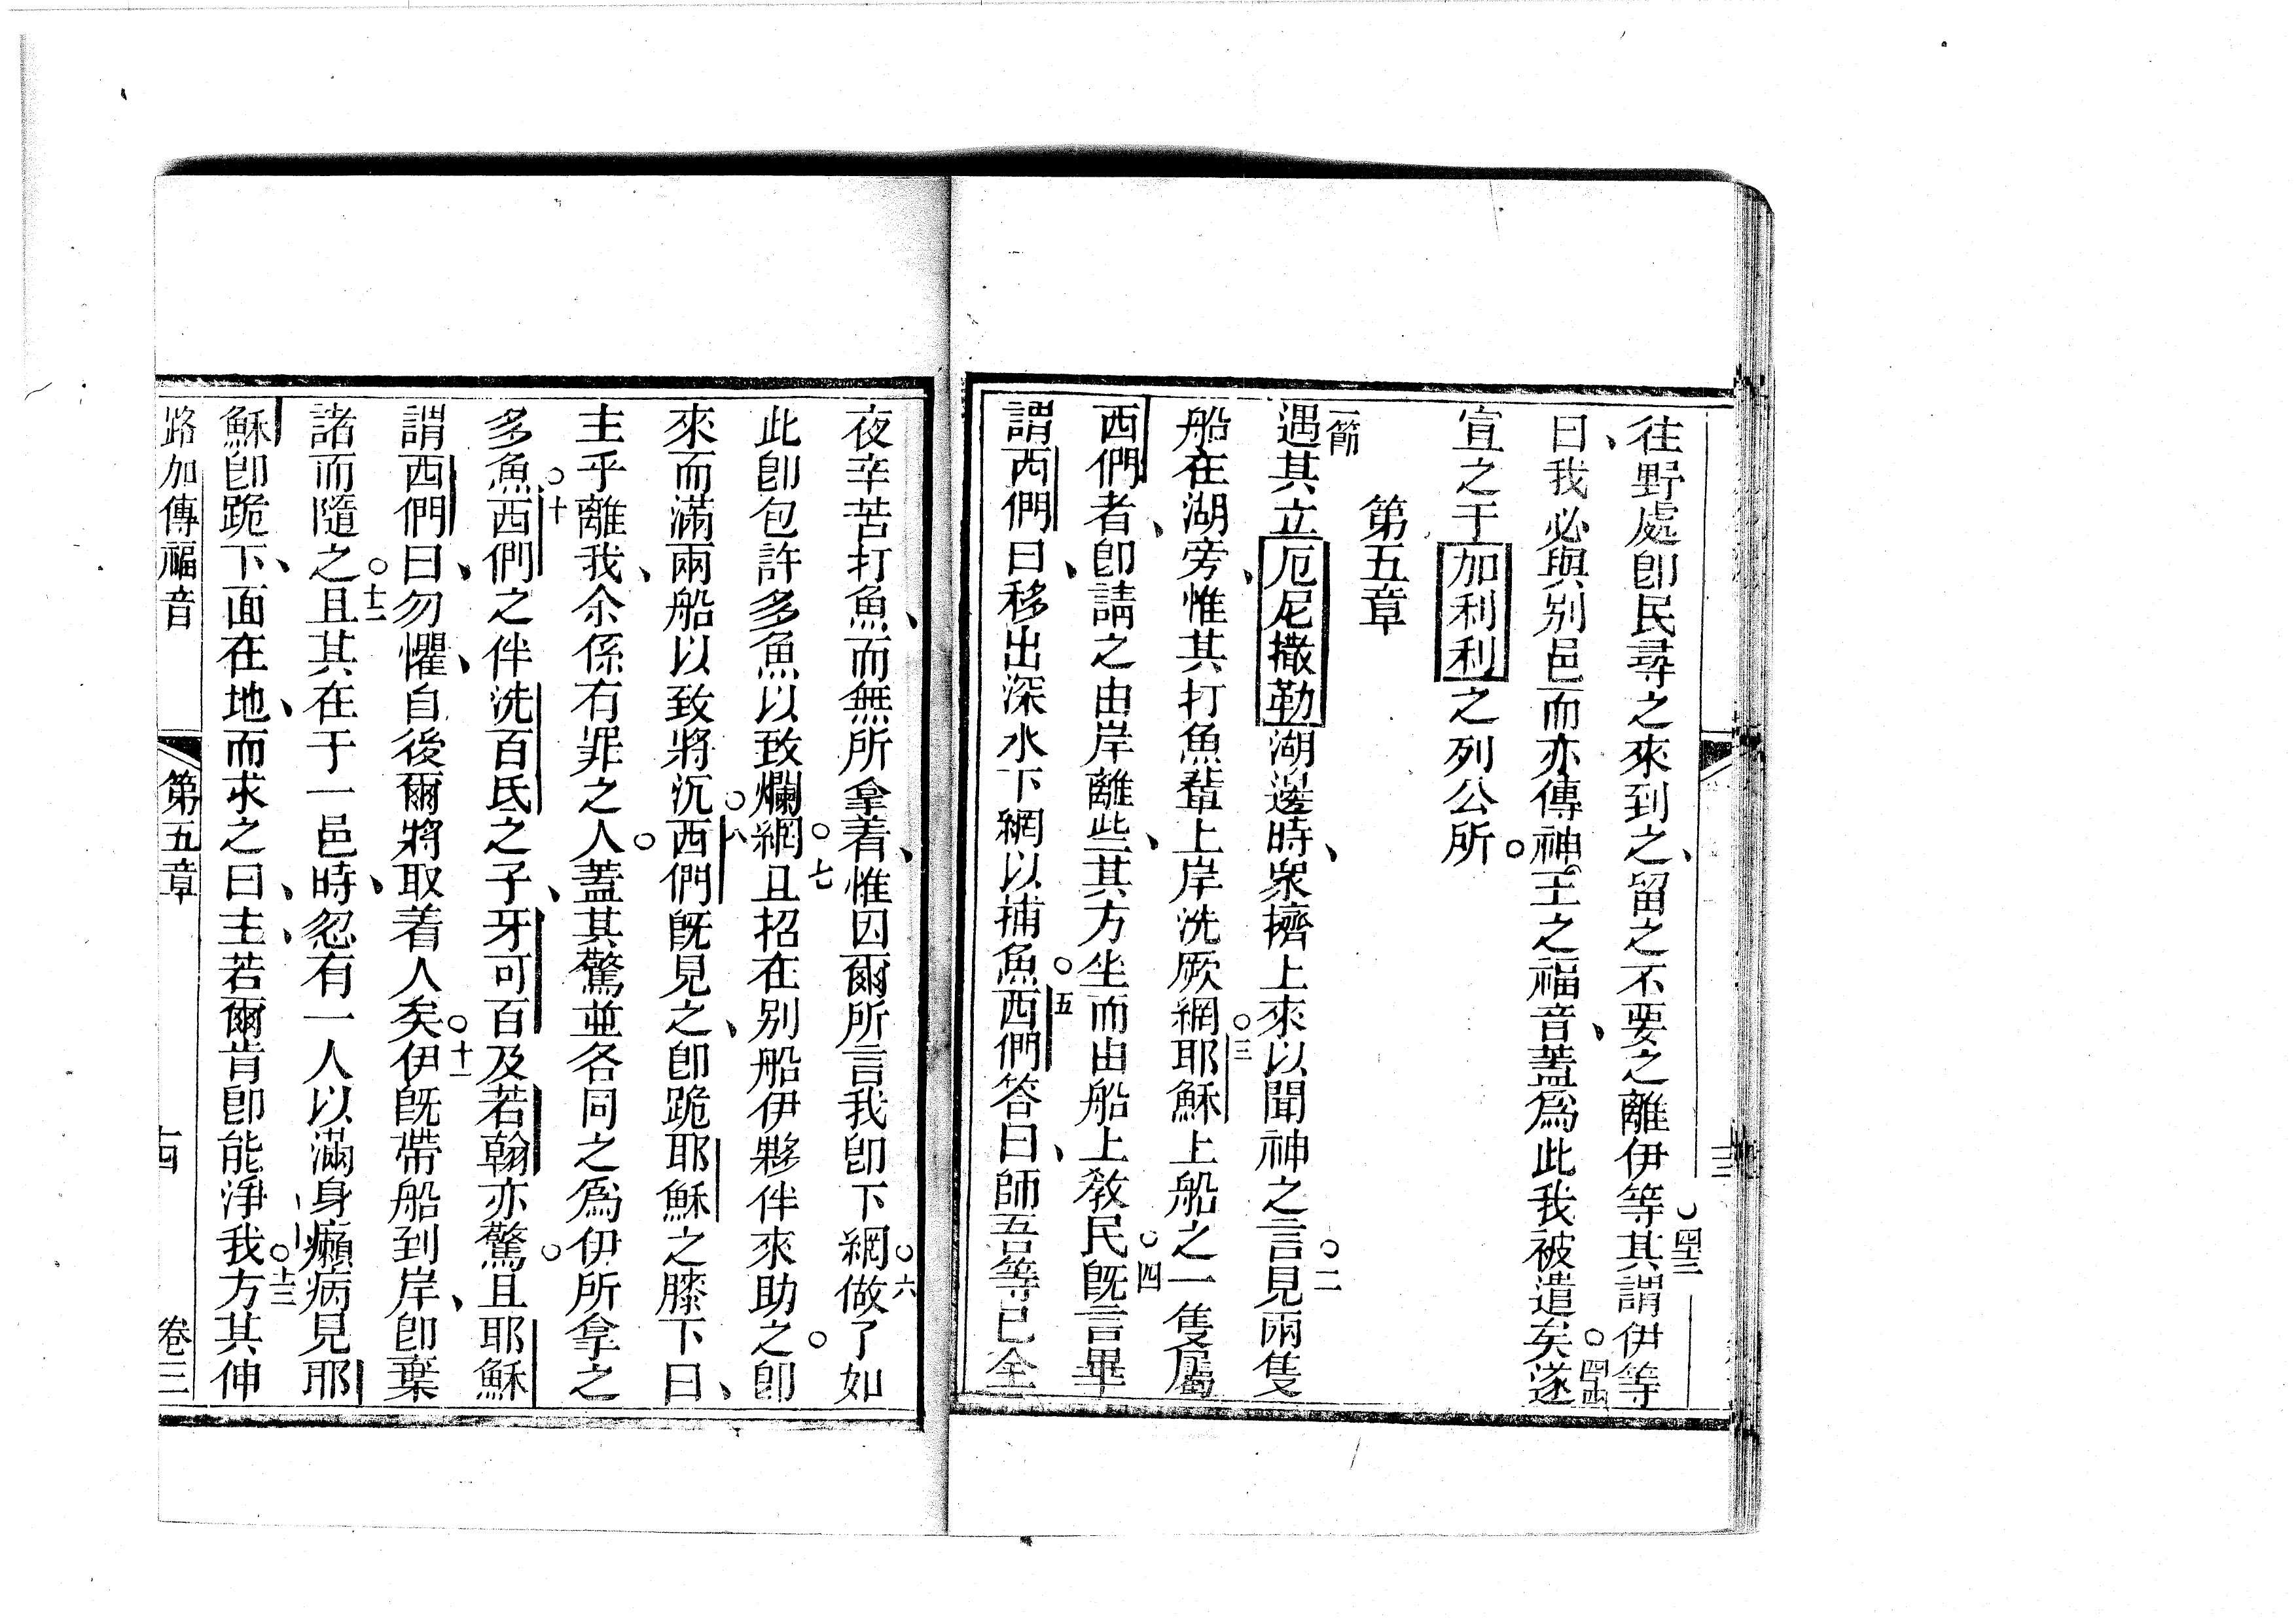 往野處卽民尋之來到之、留之不要之離伊等○四十三其謂伊等
曰、我必與別邑而亦傳神王之福音、蓋爲此我被遣矣○四十四遂
宣之于加利利之列公所○
第五章
一節遇其立厄尼撒勒湖邊時、衆擠上來以聞神之言○二見兩隻
船在湖旁、惟其打魚輩上岸洗厥網○三耶穌上船之一隻屬
西們者、卽請之由岸離些、其方坐而由船上教民○四旣言畢
謂西們曰、移出深水下網以捕魚○五西們答曰、師吾等已全
夜辛苦打魚、而無所拿着、惟因爾所言我卽下網○六做了如
此卽包許多魚以致爛網○七且招在別船伊夥伴來助之○卽
來而滿兩船以致將沉○八西們旣見之、卽跪耶穌之膝下曰、
主乎離我、余係有罪之人○蓋其驚並各同之爲伊所拿之
多魚○十西們之伴洗百氏之子、牙可百及若翰亦驚○且耶穌
謂西們曰、勿懼、自後爾將取着人矣○十一伊旣帶船到岸、卽棄
諸而隨之○十二且其在于一邑時、忽有一人以滿身癩病見耶
穌卽跪下、面在地、而求之曰、主、若爾肯卽能淨我○十三方其伸
路加傳福音　第五章　十四　卷三